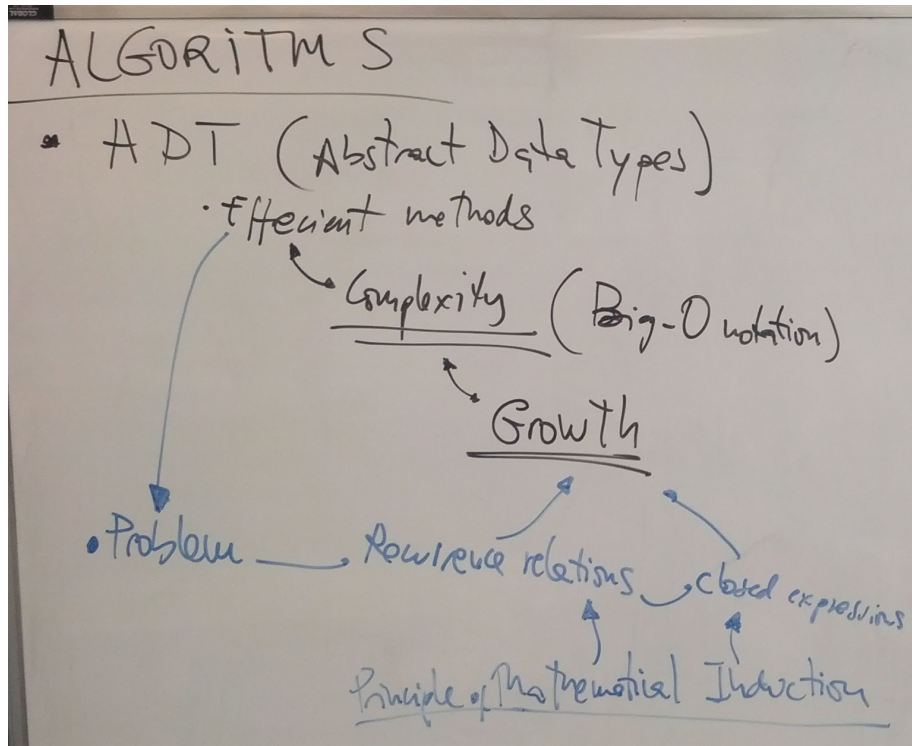 GLOBAL
ALGORiTMS
ADT (Abstract Data Types)
· Effecient methods
Complexity (Big-O notation)
Growth
• Problem Recurrence relations closed expressions
Principle of Mathematical Induction